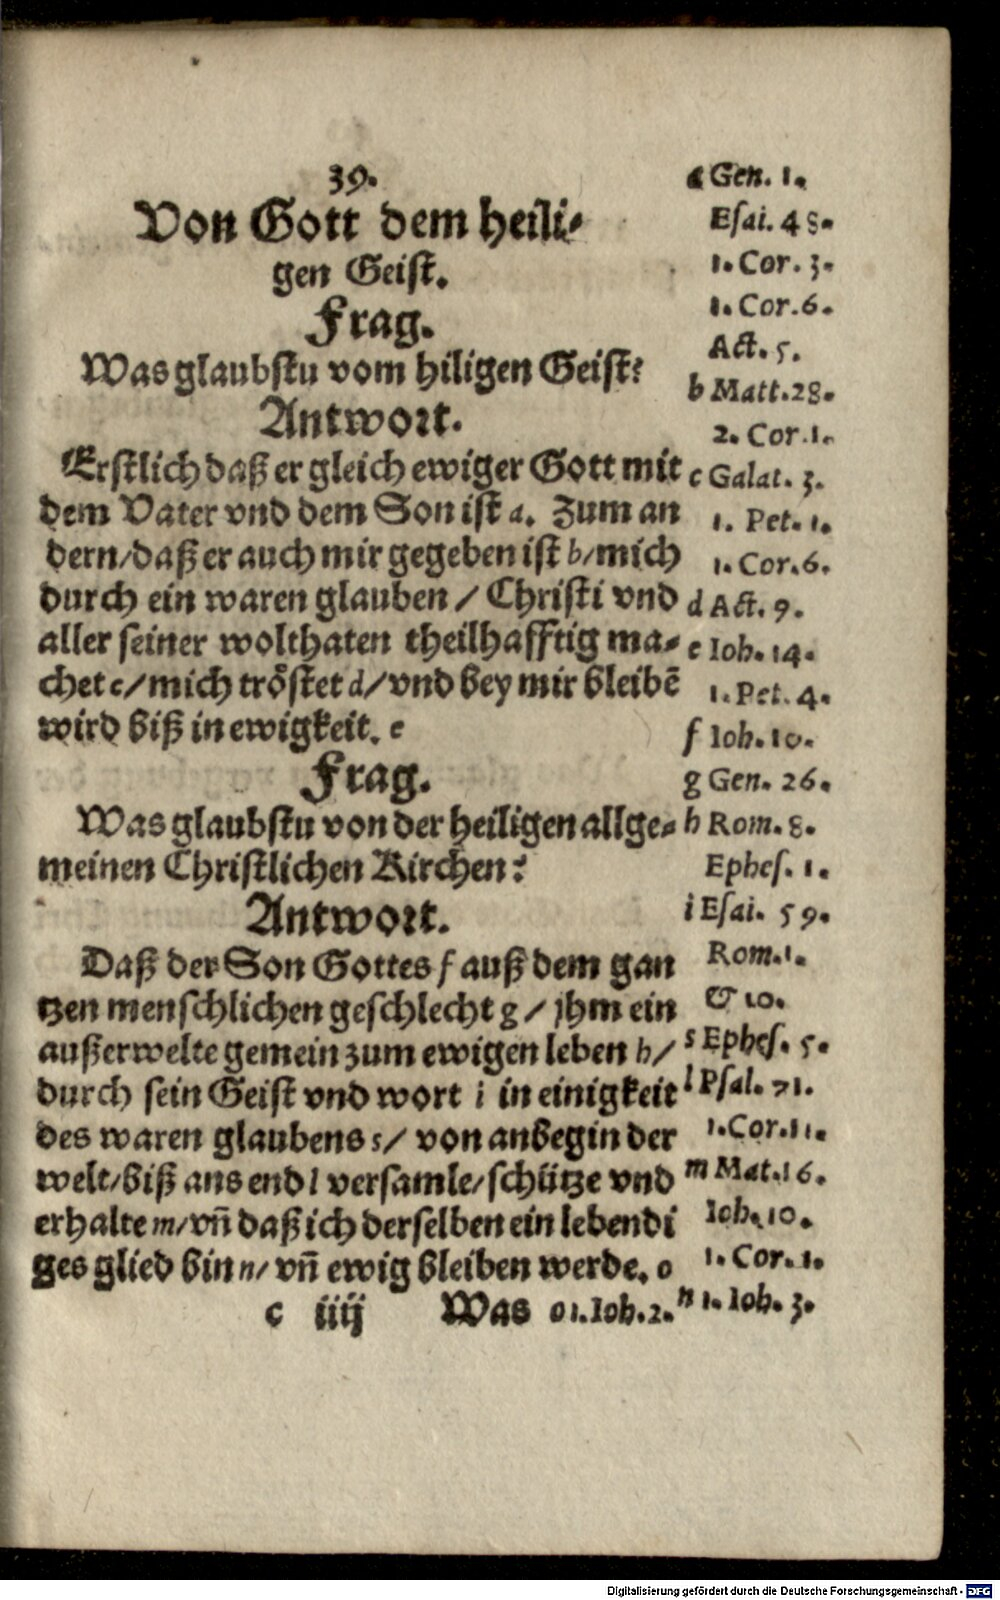 39.
Von Gott dem heili-
gen Geist.
Frag.
Was glaubstu vom hiligen Geist?
Antwort.
Erstlich daß er gleich ewiger Gott mit
dem Vater vnd dem Son ist a. Zum an
dern/daß er auch mir gegeben ist b/mich
durch ein waren glauben / Christi vnd
aller seiner wolthaten theilhafftig ma-
chet c/mich tröstet d/vnd bey mir bleibẽ
wird biß in ewigkeit. e
Frag.
Was glaubstu von der heiligen allge-
meinen Christlichen Kirchen?
Antwort.
Daß der Son Gottes f auß dem gan
tzen menschlichen geschlecht g / jhm ein
außerwelte gemein zum ewigen leben h/
durch sein Geist vnd wort i in einigkeit
des waren glaubens s/ von anbegin der
welt/biß ans end l versamle/schütze vnd
erhalte m/vñ daß ich derselben ein lebendi
ges glied bin n/ vñ ewig bleiben werde. o
c iiij Was o 1.Ioh.2.
a Gen. 1.
Esai. 48.
1. Cor. 3.
1. Cor. 6.
Act. 5.
b Matt. 28.
2. Cor. 1.
c Galat. 3.
1. Pet. 1.
1. Cor. 6.
d Act. 9.
e Ioh. 14.
1. Pet. 4.
f Ioh. 10.
g Gen. 26.
h Rom. 8.
Ephes. 1.
i Esai. 59.
Rom. 1.
& 10.
s Ephes. 5.
l Psal. 71.
1. Cor. 11.
m Mat. 16.
Ioh. 10.
1. Cor. 1.
n 1. Ioh. 3.
Digitalisierung gefördert durch die Deutsche Forschungsgemeinschaft - DFG